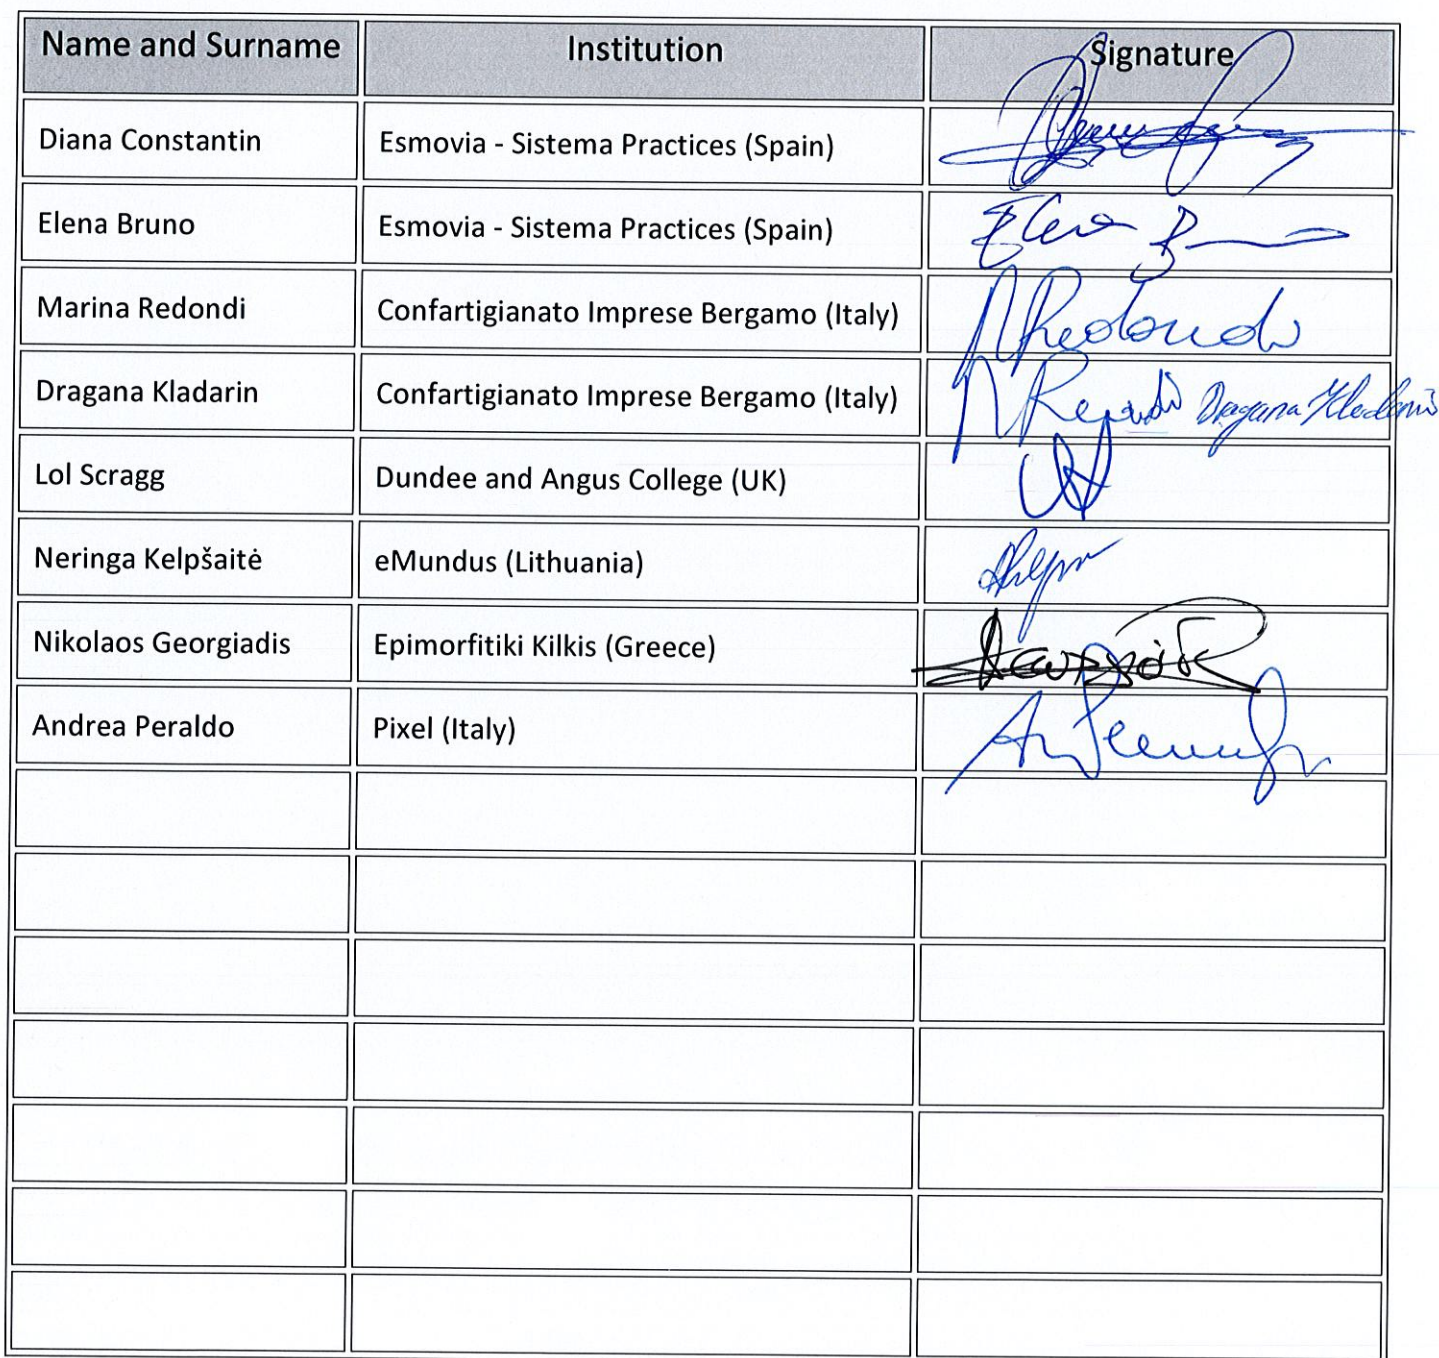 Name and Surname Institution Signature
Diana Constantin Esmovia - Sistema Practices (Spain)
Elena Bruno Esmovia - Sistema Practices (Spain) Elena B
Marina Redondi Confartigianato Imprese Bergamo (Italy) MRedondi
Dragana Kladarin Confartigianato Imprese Bergamo (Italy) Dragana Kladarin
Lol Scragg Dundee and Angus College (UK)
Neringa Kelpšaitė eMundus (Lithuania)
Nikolaos Georgiadis Epimorfitiki Kilkis (Greece)
Andrea Peraldo Pixel (Italy)